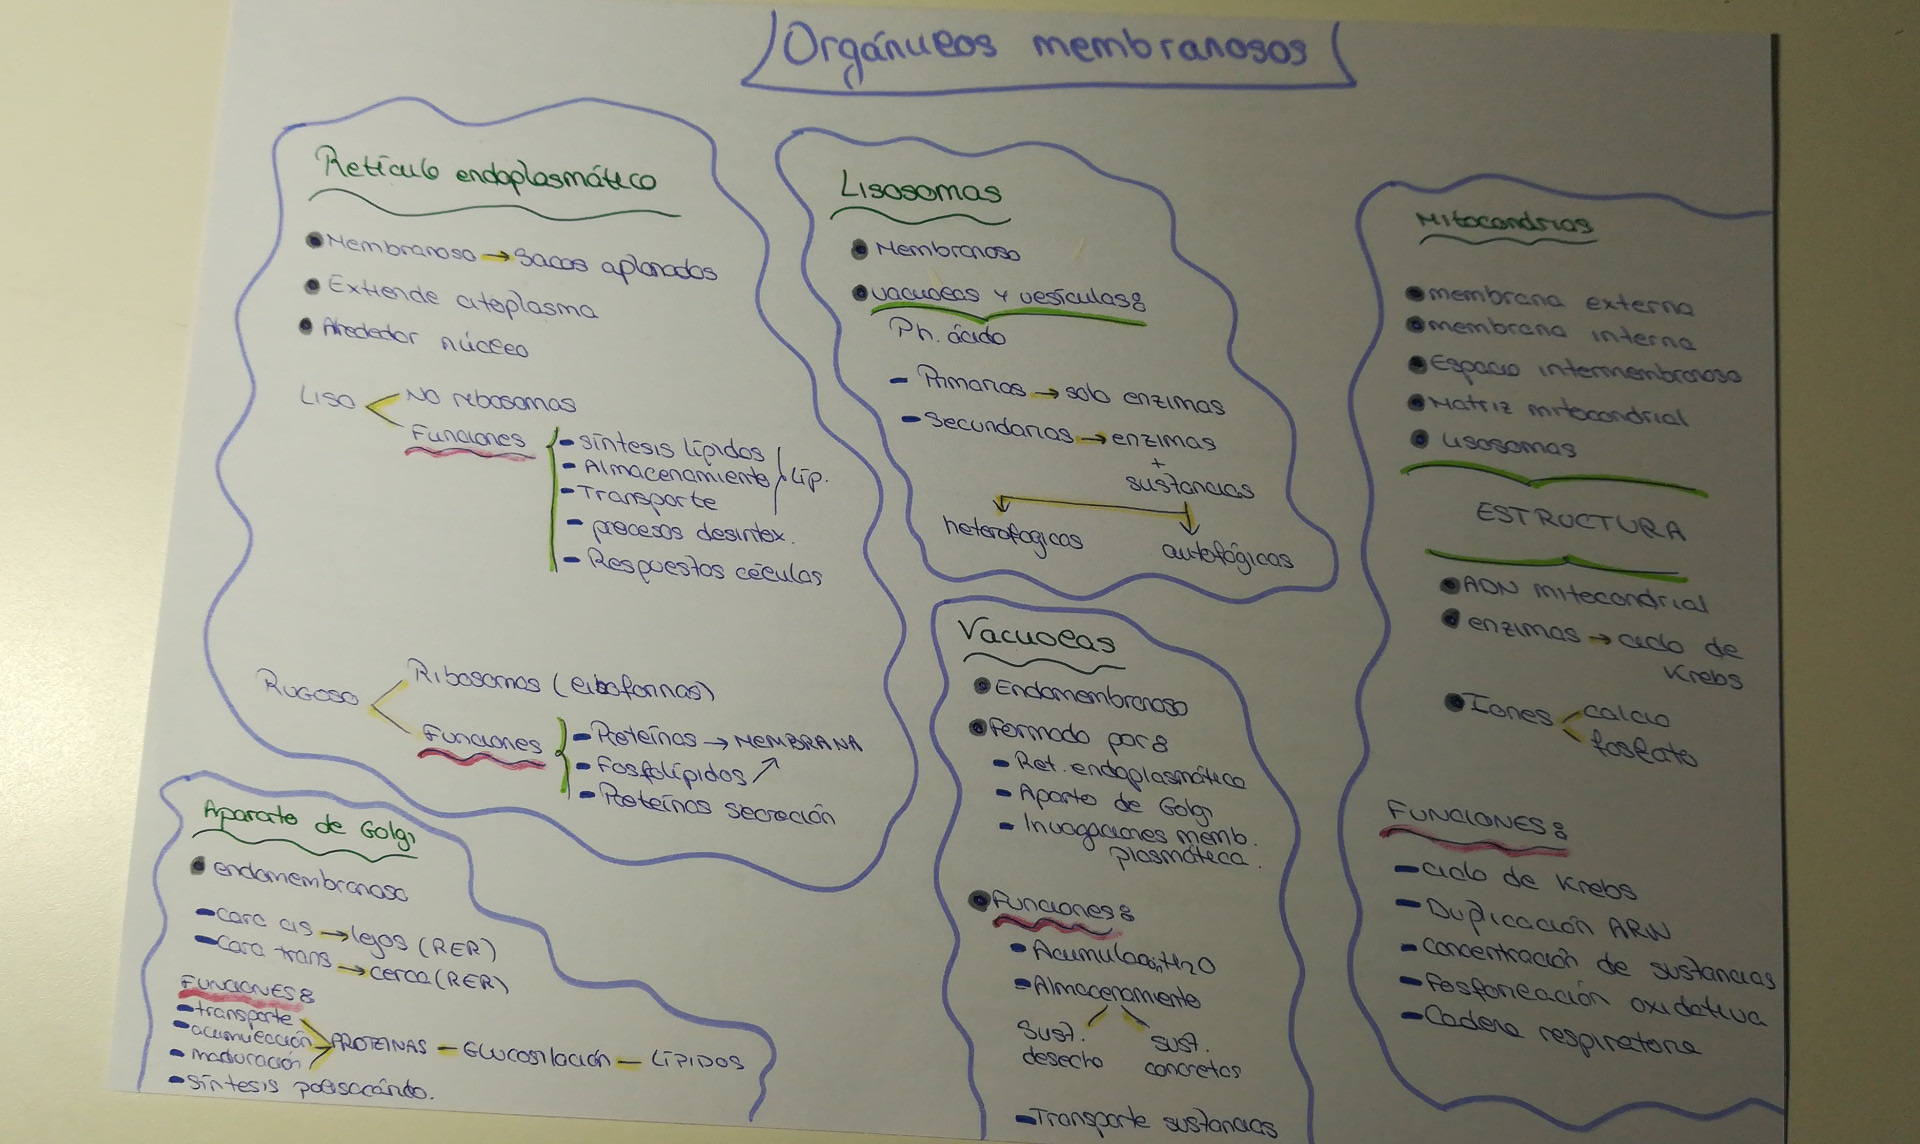 Orgánulos membranosos
Retículo endoplasmático
Membranoso → sacos aplanados
Extiende citoplasma
Alrededor núcleo
Liso
No ribosomas
Funciones
- síntesis lípidos
- Almacenamiento
- Transporte
Líp.
- procesos desintox.
- Respuestas células
Rugoso
Ribosomas (riboforinas)
Funciones
- Proteínas → MEMBRANA
- Fosfolípidos ↗
- Proteínas secreción
Aparato de Golgi
endomembranoso
- cara cis → lejos (RER)
- cara trans → cerca (RER)
FUNCIONES:
- transporte
- acumulación
- maduración
PROTEINAS - Glucosilación - LÍPIDOS
- síntesis polisacárido.
Lisosomas
Membranoso
vacuolas y vesículas:
Ph. ácido
- Primarios → solo enzimas
- Secundarios → enzimas
+
sustancias
heterofagicos
autofágicas
Vacuolas
Endomembranoso
Formado por:
- Ret. endoplasmático
- Aparto de Golgi
- Invagaciones memb.
plasmática.
Funciones:
- Acumulación H2O
- Almacenamiento
Sust.
desecho
sust.
concretas
- Transporte sustancias
Mitocondrias
membrana externa
membrana interna
Espacio intermembranoso
Matriz mitocondrial
Lisosomas
ESTRUCTURA
ADN mitocondrial
enzimas → ciclo de
Krebs
Iones
calcio
fosfato
FUNCIONES:
- ciclo de Krebs
- Duplicación ARN
- Concentración de sustancias
- Fosforilación oxidativa
- Cadena respiratoria